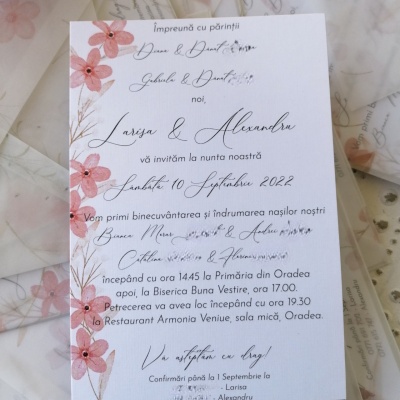 Împreună cu părinții
Diana & Danut
Gabriela & Danut
noi,
Larisa & Alexandru
vă invităm la nunta noastră
Sambata 10 Septembrie 2022
Vom primi binecuvântarea și îndrumarea nașilor noștri
Bianca & Andrei
Catalina & Florin
începând cu ora 14.45 la Primăria din Oradea
apoi, la Biserica Buna Vestire, ora 17.00.
Petrecerea va avea loc începând cu ora 19.30
la Restaurant Armonia Veniue, sala mică, Oradea.
Va asteptam cu drag!
Confirmări până la 1 Septembrie la
- Larisa
- Alexandru